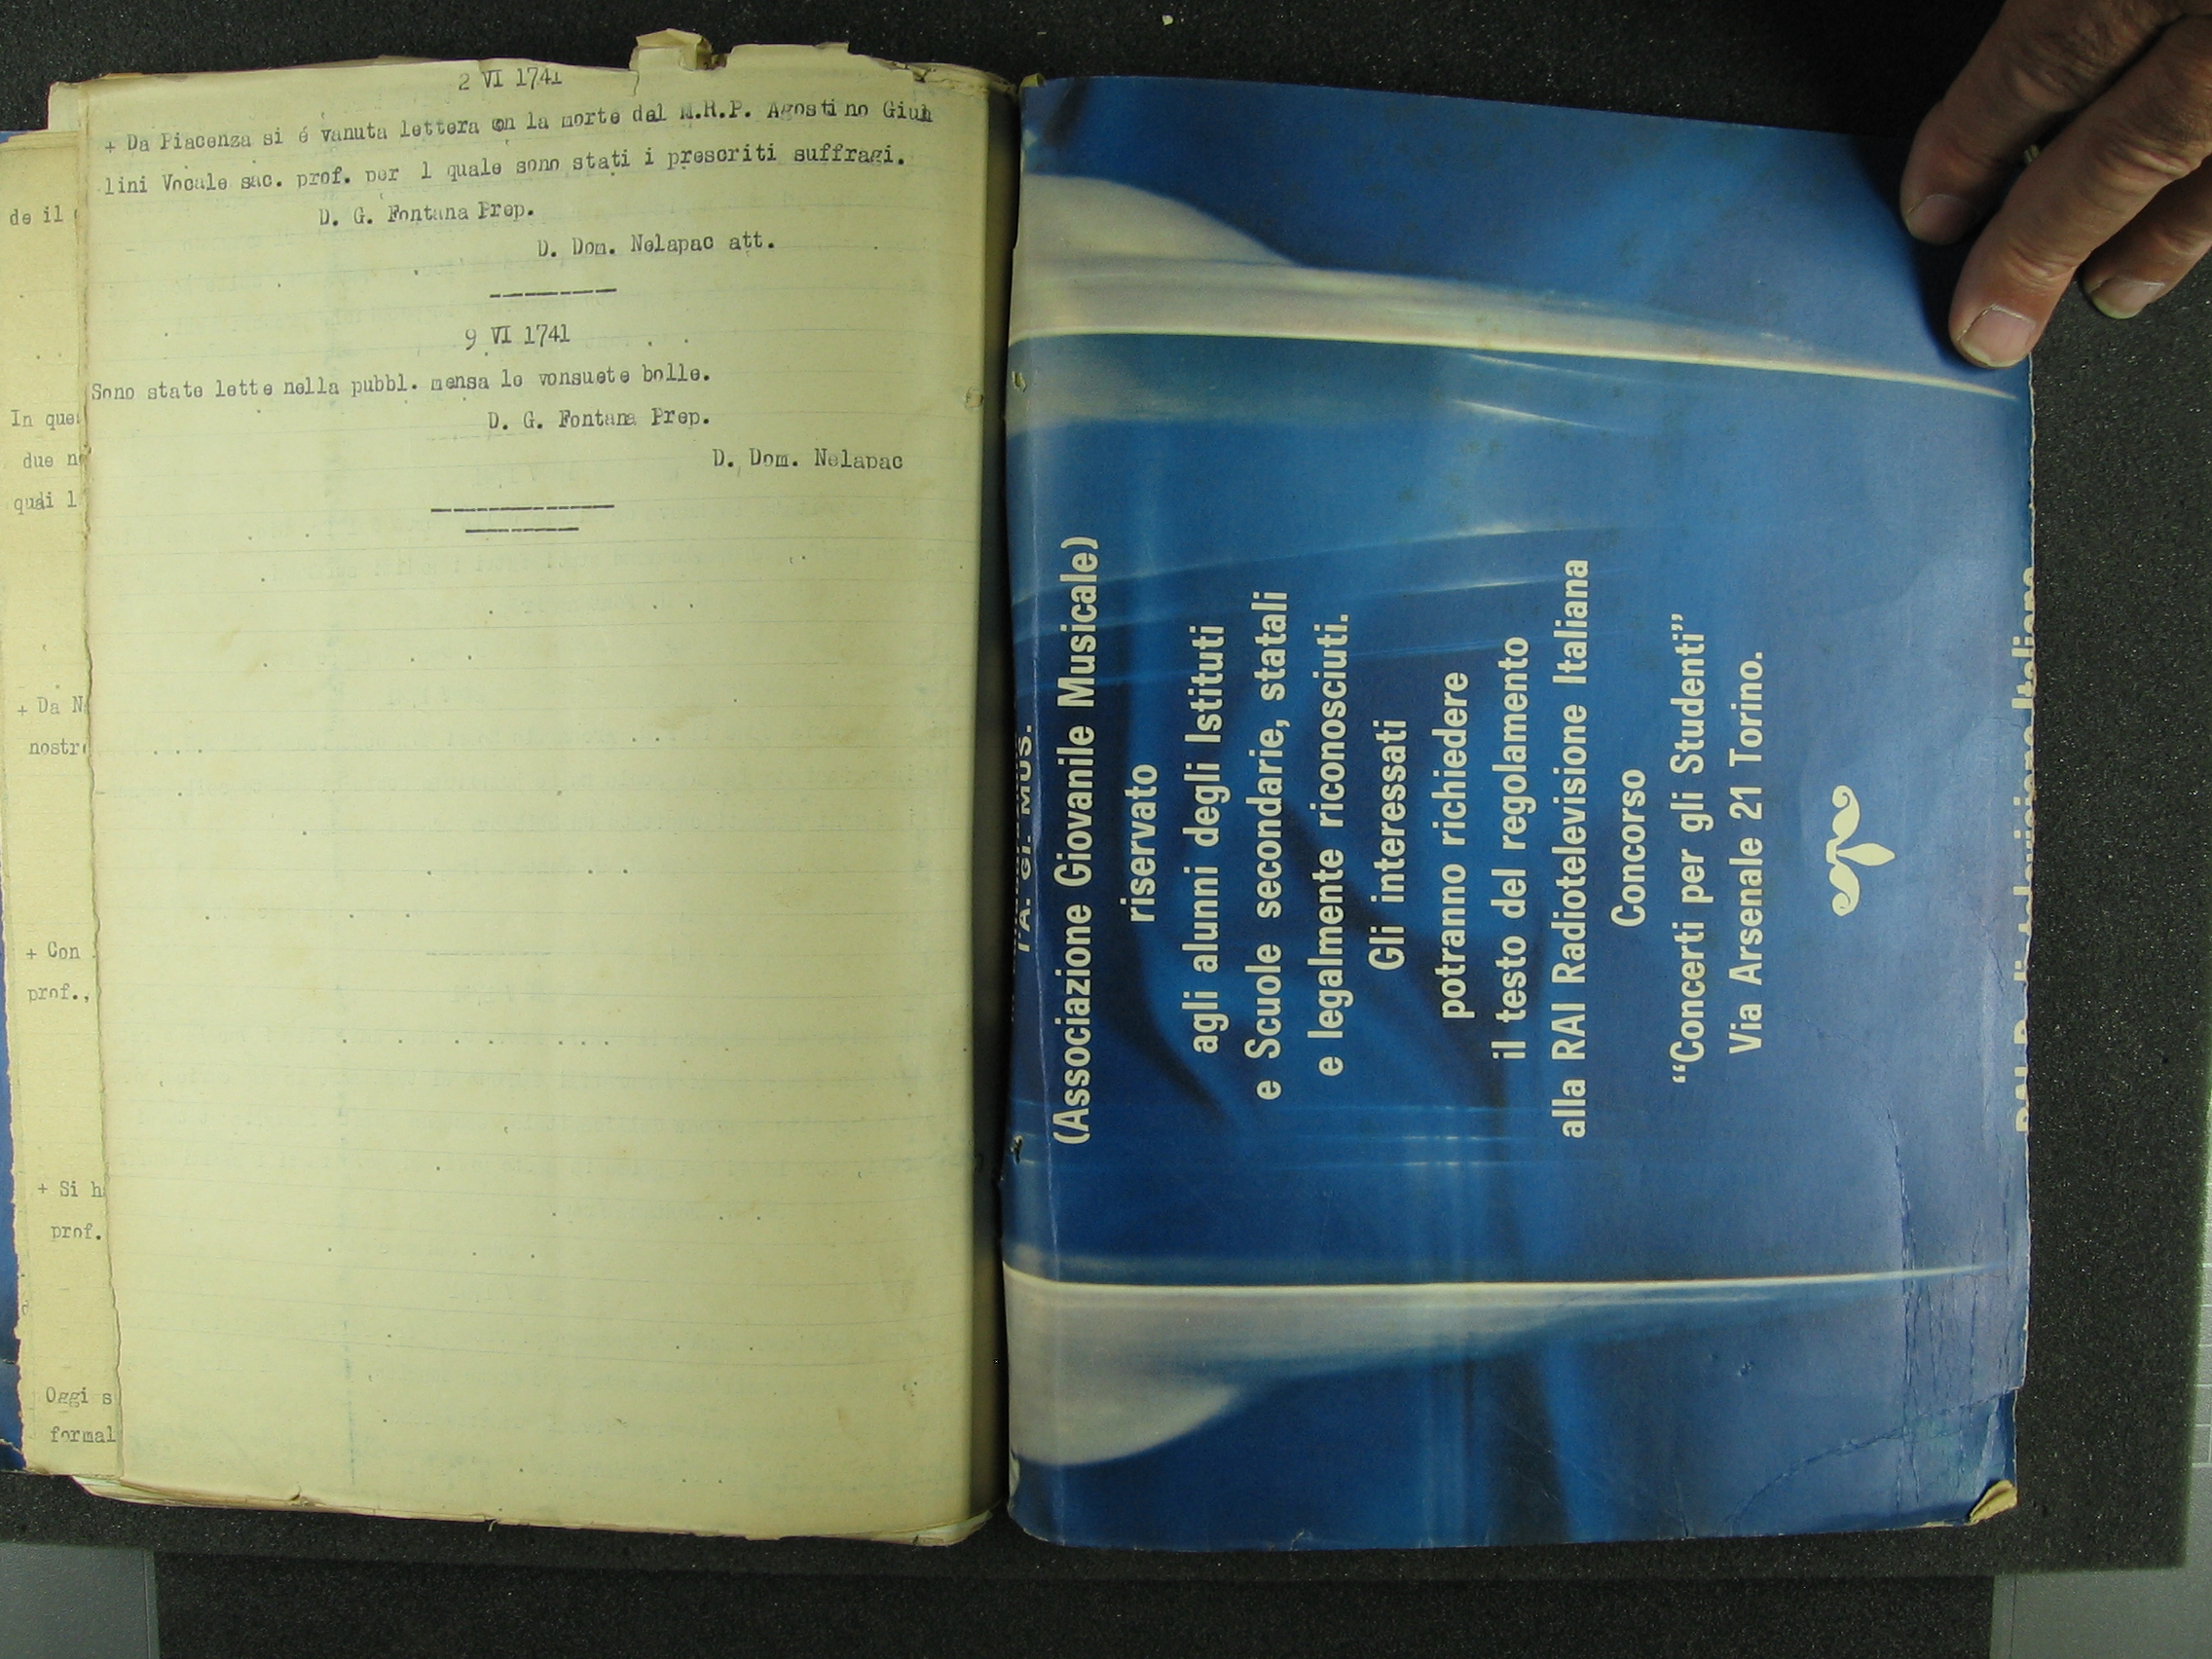 2 VI 1741
+ Da Piacenza si é vanuta lettera on la morte dal M.R.P. Agostino Giuh
lini Vocale sac. prof. per l quale sono stati i prescriti suffragi.
D. G. Fontana Prep.
D. Dom. Nelapac att.
---------
9 VI 1741
Sono state lette nella pubbl. mensa le vonsuete bolle.
D. G. Fontana Prep.
D. Dom. Nelapac
de il
In que
due n
quai l
+ Da N
nostr
+ Con
prof.,
+ Si h
prof.
Oggi s
formal
l'A. GI. MUS.
(Associazione Giovanile Musicale)
riservato
agli alunni degli Istituti
e Scuole secondarie, statali
e legalmente riconosciuti.
Gli interessati
potranno richiedere
il testo del regolamento
alla RAI Radiotelevisione Italiana
Concorso
“Concerti per gli Studenti”
Via Arsenale 21 Torino.